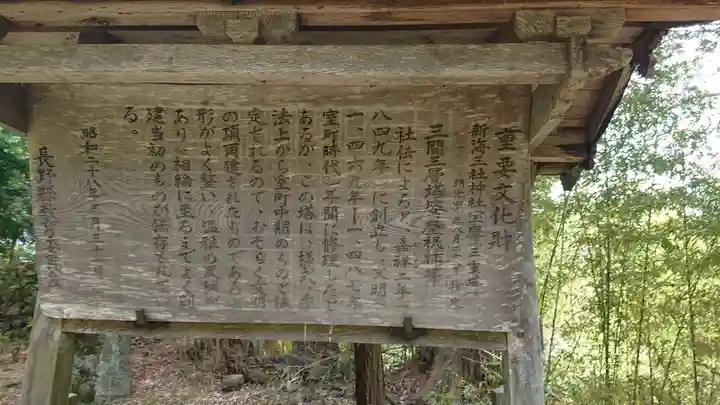 重要文化財
新海三社神社宝庫三重塔
三間三層塔婆屋根柿葺
社伝によると、嘉祥二年(
八四九年)に創立し、文明
一、四六九年―一、四八七年
室町時代)年間に修理したと
あるが、この塔は、様式、手
法上から室町中期のものと推
定されるので、おそらく文明
の頃再建されたものである。
形がよく整い、温雅の風
あり、相輪に至るまでよく
建当初のものが保存されて
る。
昭和二十八年 月三十一日
長野縣教育委員会